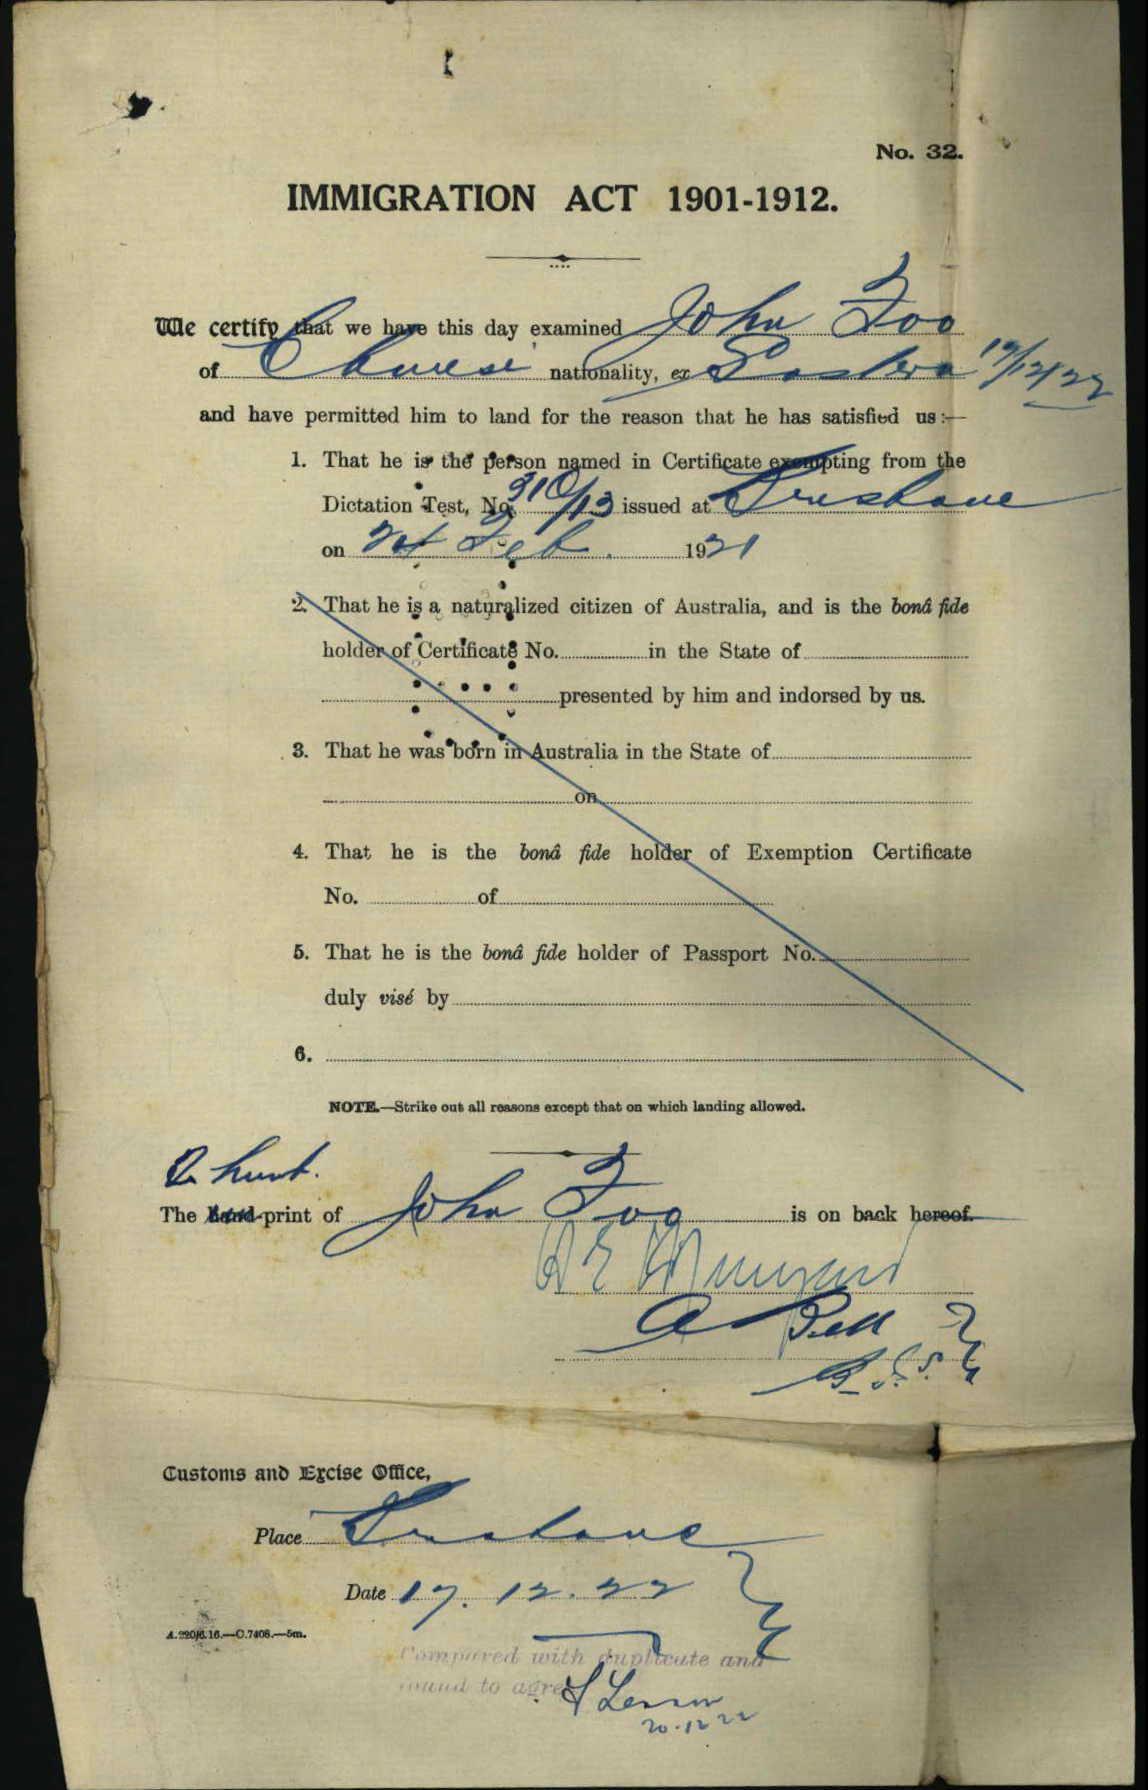 No. 32.
IMMIGRATION ACT 1901-1912.
We certify that we have this day examined John Foo
of Chinese nationality, ex Eastern 17/12/22
and have permitted him to land for the reason that he has satisfied us:—
1. That he is the person named in Certificate exempting from the
Dictation Test, No. 310/13 issued at Brisbane
on 24 Feb. 1921
2. That he is a naturalized citizen of Australia, and is the bonâ fide
holder of Certificate No. in the State of
presented by him and indorsed by us.
3. That he was born in Australia in the State of
on
4. That he is the bonâ fide holder of Exemption Certificate
No. of
5. That he is the bonâ fide holder of Passport No.
duly visé by
6.
NOTE.—Strike out all reasons except that on which landing allowed.
The hand-print of John Foo is on back hereof.
A Bell
Customs and Excise Office,
Place Brisbane
Date 17.12.22
A.220/6.16.—C.7408.—5m.
Compared with duplicate and
found to agree.
20.12.22